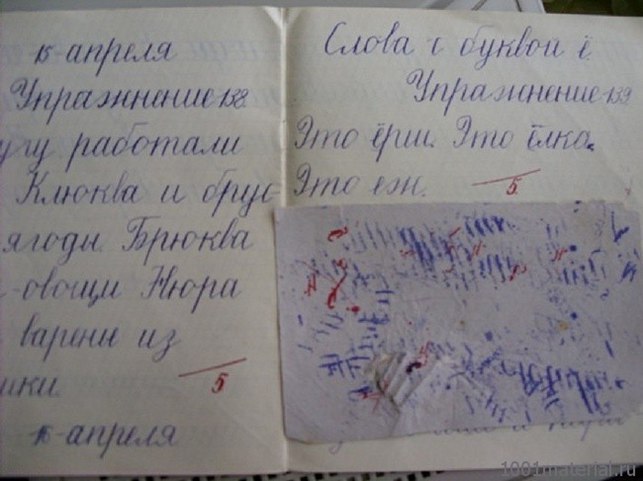 15 апреля
Упражнение 138.
угу работали
Клюква и брус-
ягоды. Брюква
-овощи Нюра
из
ики.
5
16-апреля
Слова с буквой ё
Упражнение 139
Это ёрш. Это ёлка.
Это еж. 5
1001material.ru